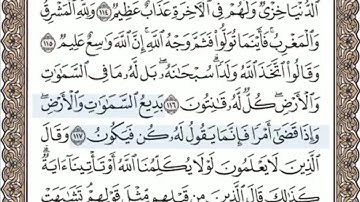 ٱلدُّنْيَا خِزْىٌ وَلَهُمْ فِى ٱلْءَاخِرَةِ عَذَابٌ عَظِيمٌ ١١٤ وَلِلَّهِ ٱلْمَشْرِقُ
وَٱلْمَغْرِبُ فَأَيْنَمَا تُوَلُّوا۟ فَثَمَّ وَجْهُ ٱللَّهِ إِنَّ ٱللَّهَ وَٰسِعٌ عَلِيمٌ ١١٥
وَقَالُوا۟ ٱتَّخَذَ ٱللَّهُ وَلَدًا سُبْحَٰنَهُۥ بَل لَّهُۥ مَا فِى ٱلسَّمَٰوَٰتِ
وَٱلْأَرْضِ كُلٌّ لَّهُۥ قَٰنِتُونَ ١١٦ بَدِيعُ ٱلسَّمَٰوَٰتِ وَٱلْأَرْضِ
وَإِذَا قَضَىٰٓ أَمْرًا فَإِنَّمَا يَقُولُ لَهُۥ كُن فَيَكُونُ ١١٧ وَقَالَ
ٱلَّذِينَ لَا يَعْلَمُونَ لَوْلَا يُكَلِّمُنَا ٱللَّهُ أَوْ تَأْتِينَآ ءَايَةٌ
كَذَٰلِكَ قَالَ ٱلَّذِينَ مِن قَبْلِهِم مِّثْلَ قَوْلِهِمْ تَشَٰبَهَتْ